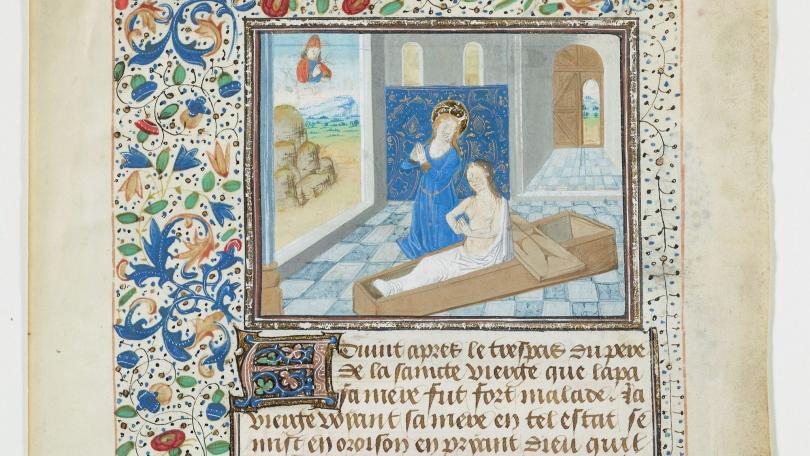 Aduint apres le trespas du pere
de la saincte vierge que lapa
sa mere fut fort malade. La
vierge voyant sa mere en tel estat se
mist en oroison en pryant dieu quil